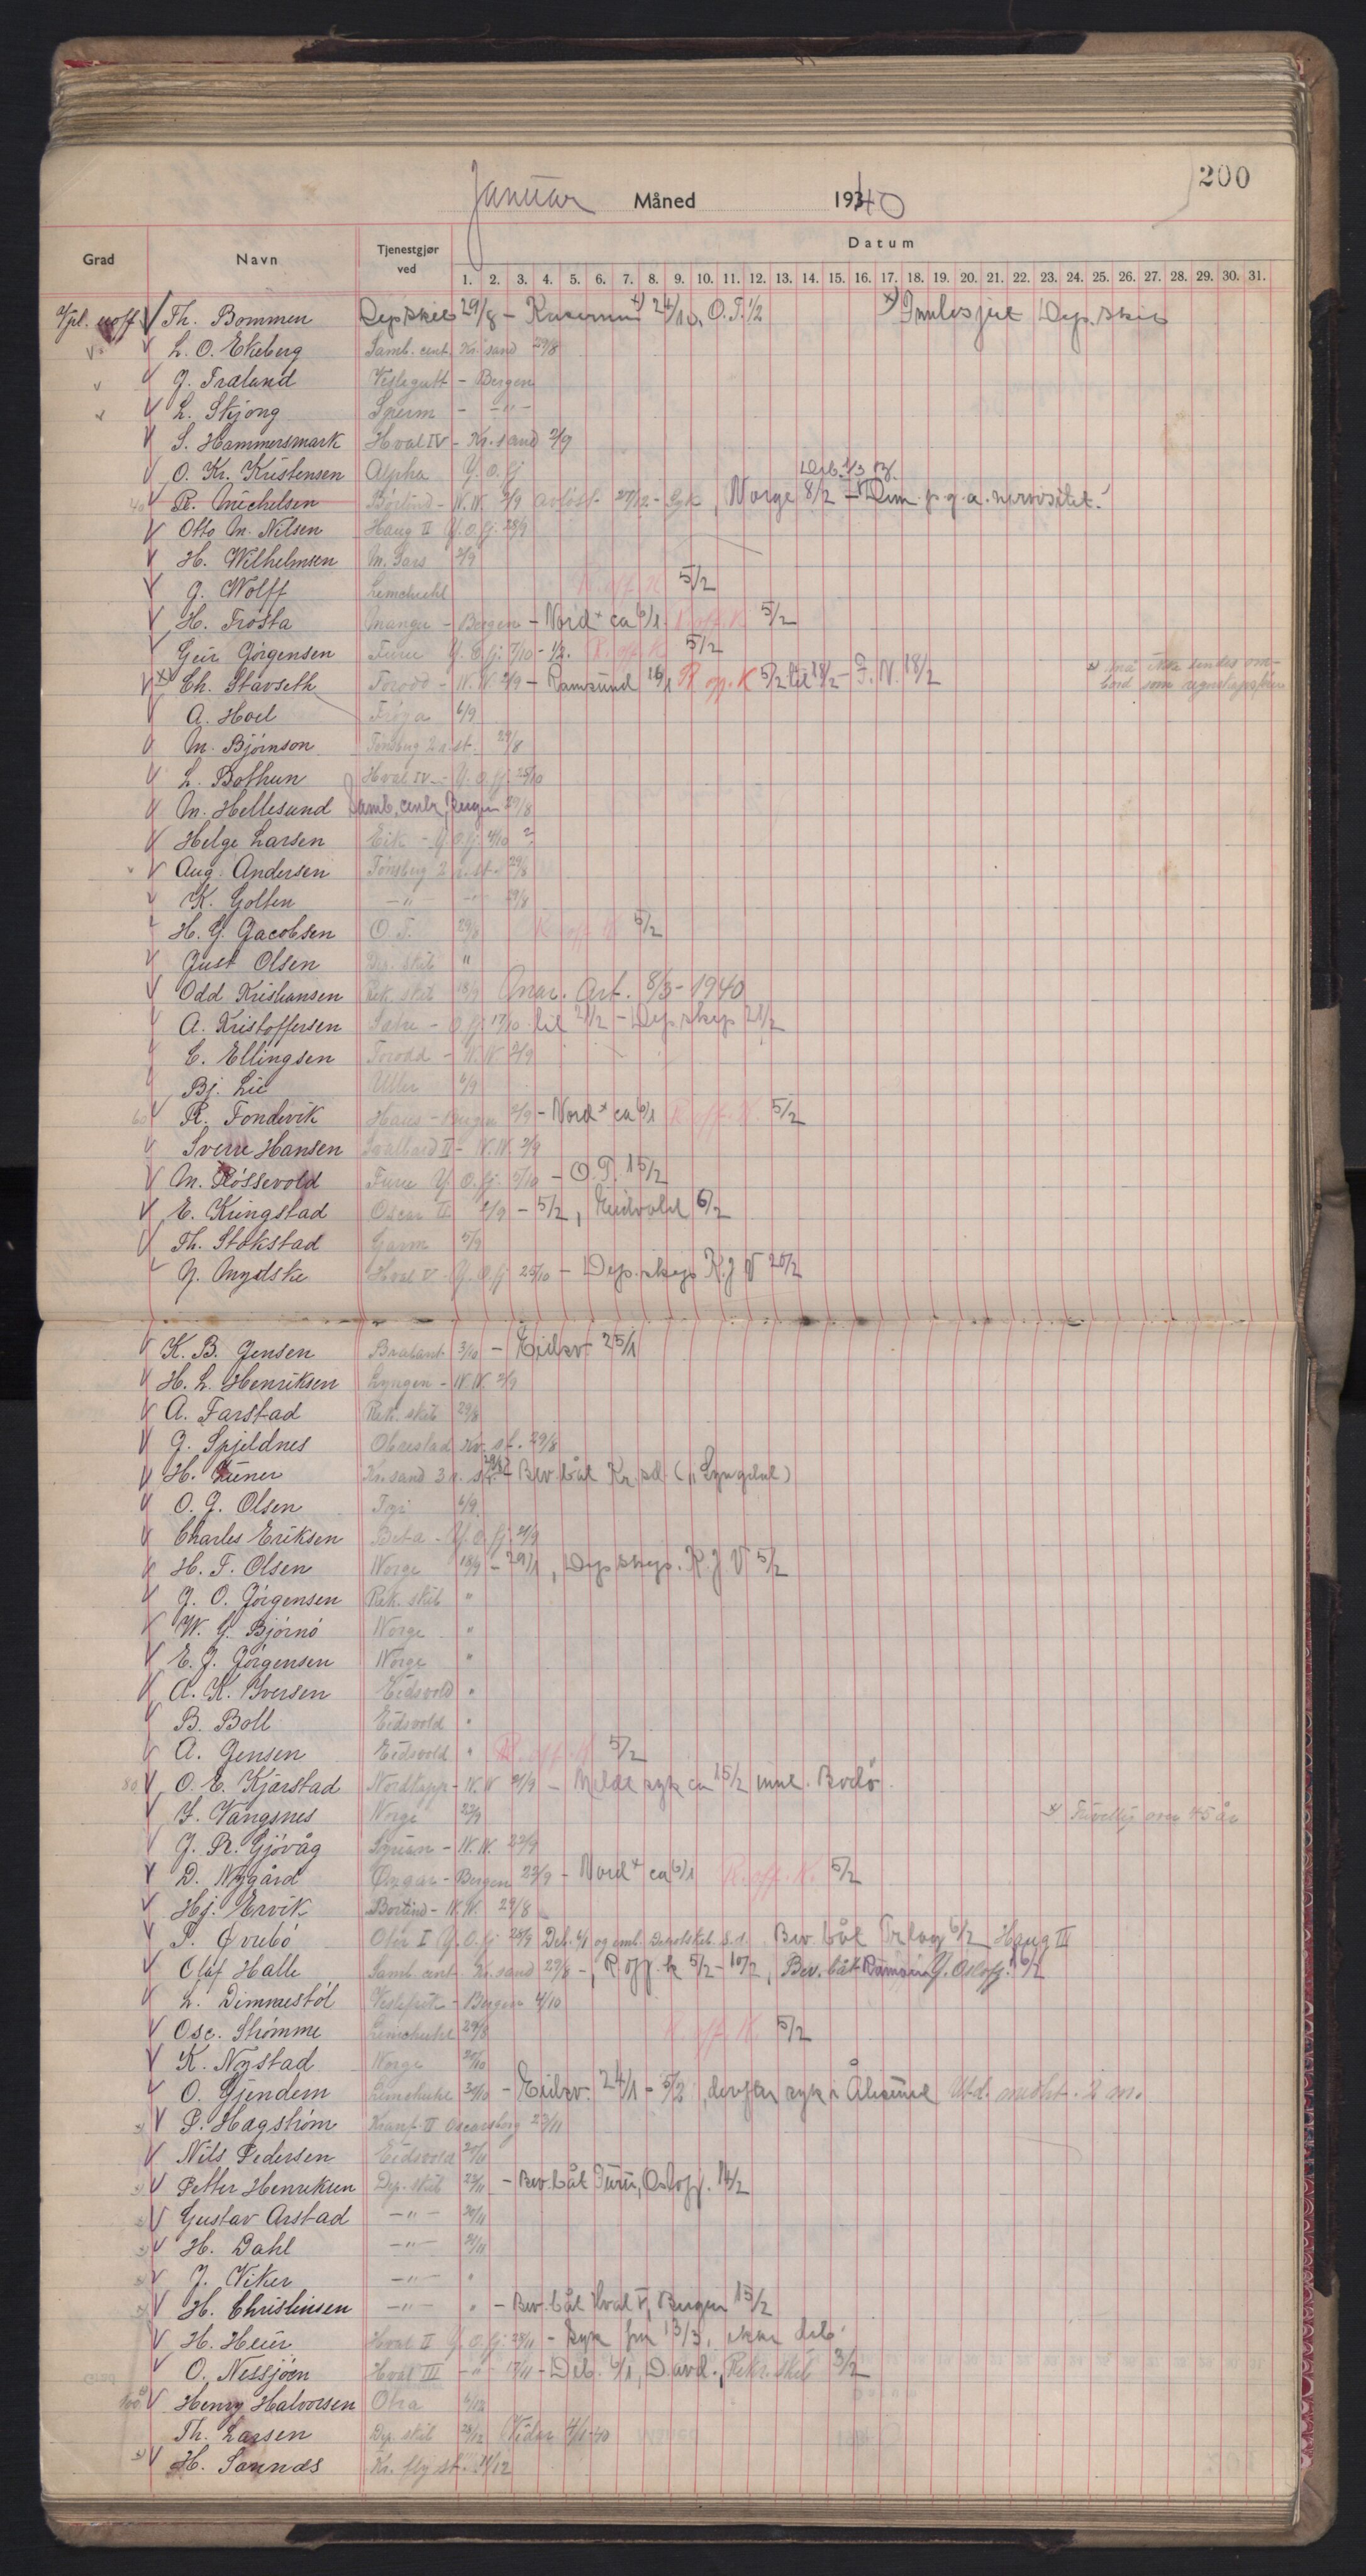 200
Januar Måned 1940
Grad Navn Tjenestgjør ved Datum
1. 2. 3. 4. 5. 6. 7. 8. 9. 10. 11. 12. 13. 14. 15. 16. 17. 18. 19. 20. 21. 22. 23. 24. 25. 26. 27. 28. 29. 30. 31.
Vpl. uoff. Th. Bommen Depskib 29/8 - 24/10, O.T. 1/2 Dep. skib
L. O. Ekeberg Samb. cent. Kr.sand 29/8
J. Traland Veslegutt - Bergen
L. Skjong Sperm - -"-
S. Hammersmark Hval IV - Kr.sand 2/9
O. Kr. Kristensen Alpha Y.O.fj
40 R. Michelsen N.N. 2/9 avløst. 27/12 - Syk, Norge 8/2 - Dim. p.g.a. nervøsitet.
Otto M. Nilsen Haug II Y.O.fj. 28/9
H. Wilhelmsen M. Sars 2/9
J. Wolff Lemchuhl R. off. K 5/2
H. Frosta Manger - Bergen - Nord ca 6/1 R. off. K. 5/2
Geir Jørgensen Furu Y.O.fj. 7/10 - 1/2. R. off. K 5/2
Ch. Stavseth Torodd - N.N. 2/9 - Ramsund 16/1 R. off. K 5/2 til 18/2 - F. N. 18/2 x) må ikke sendes ombord som regnskapsfører
A. Hoel Frøya 6/9
M. Bjørnson Tønsberg 2 a.st. 29/8
L. Bothun Hval IV - Y.O.fj. 25/10
M. Hellesund Samb. centr. Bergen 29/8
Helge Larsen Eik - Y.O.fj. 4/10 ?
Aug. Andersen Tønsberg 2 a.st. 29/8
K. Golten -"- -"- 29/8
H. G. Jacobsen O.T. 29/8 R. off. K 5/2
Just Olsen Dep. skib "
Odd Kristiansen Rek. skib 18/9 8/3 - 1940
A. Kristoffersen Satre - O.fj. 17/10 til 21/2 - Depskip 21/2
E. Ellingsen Torodd - N.N. 2/9
Bj. Lie Uller 6/9
60 R. Fondevik Haus - Bergen 2/9 - Nord ca 6/1 R. off. K. 5/2
Sverre Hansen Svalbard II - N.N. 2/9
M. Røssevold Furu Y.O.fj. 5/10 - O.T. 15/2
E. Kringstad Oscar II 2/9 - 5/2, Eidsvold 6/2
Th. Stokstad Garm 5/9
J. Mydske Hval V - Y.O.fj 25/10 - Dep.skip K.J.V 20/2
K. B. Jensen Brabant 3/10 - Eidsv. 25/1
H. L. Henriksen Lyngen - N.N. 2/9
A. Farstad Rek. skib 29/8
J. Spjeldnes Obrestad Kv. st. 29/8
H. Tuner Kr.sand 3 a. st. Bev.båt Kr.sd. ("Lyngdal")
O. J. Olsen Tyr 6/9
Charles Eriksen Beta - Y.O.fj. 21/9
H. F. Olsen Norge 18/9 - 29/1, Depskip. K.J.V 5/2
J. O. Jørgensen Rek. skib "
W. G. Bjørnø Norge "
E. J. Jørgensen Norge "
A. K. Iversen Eidsvold "
B. Boll Eidsvold "
A. Jensen Eidsvold " R. off. K 5/2
80 O. E. Kjørstad Nordkapp - N.N. 21/9 - Meldt syk ca 15/2 innl. Bodø.
F. Vangsnes Norge 22/9 x) Frivillig over 45 år
J. R. Gjøvåg Syrian - N.N. 23/9
D. Nygård Bergen 23/9 - Nord ca 6/1 R. off. K. 5/2
Hj. Ervik Bortind - N.N. 29/8
P. Øvrebø Otra I Y.O.fj 28/9 Deb. 4/1 og emb. Depotskib s.d. Bev. båt 6/2 Haug III
Olaf Halle Samb. cent. Kr.sand 29/8 -, R off. k 5/2 - 10/2, Bev. båt Ramoen Y. Oslofj. 16/2
L. Dimmestøl Veslefrikk - Bergen 4/10
Osc. Strømme Lemchuhl 29/8 R. off. K. 5/2
K. Nystad Norge 20/10
O. Gjendem Lemchuhl 30/10 - Eidsv. 24/1 - 5/2, derefter syk i Ålesund Utd. 2 m.
P. Hagstrøm Kranf. II Oscarsborg 23/11
Nils Pedersen Eidsvold
Petter Henriksen Dep. skib 23/11 - Bev.båt Furu, Oslofj. 14/2
Gustav Årstad -"- 20/11
H. Dahl -"- 21/11
J. Viker -"- "
H. Christensen -"- " - Bev.båt Hval V, Bergen 15/2
H. Heier Hval II Y.O.fj. 28/11 - Syk fra 13/3, skal deb.
O. Nessjøen Hval III -"- 17/11 - Deb. 4/1, D.avd., Rekr. skib 3/2
100 Henry Halvorsen Otra 4/12
Th. Larsen Dep. skib 28/12 Vidar 4/1-40
H. Sannæs Kr. flyst. 11/12